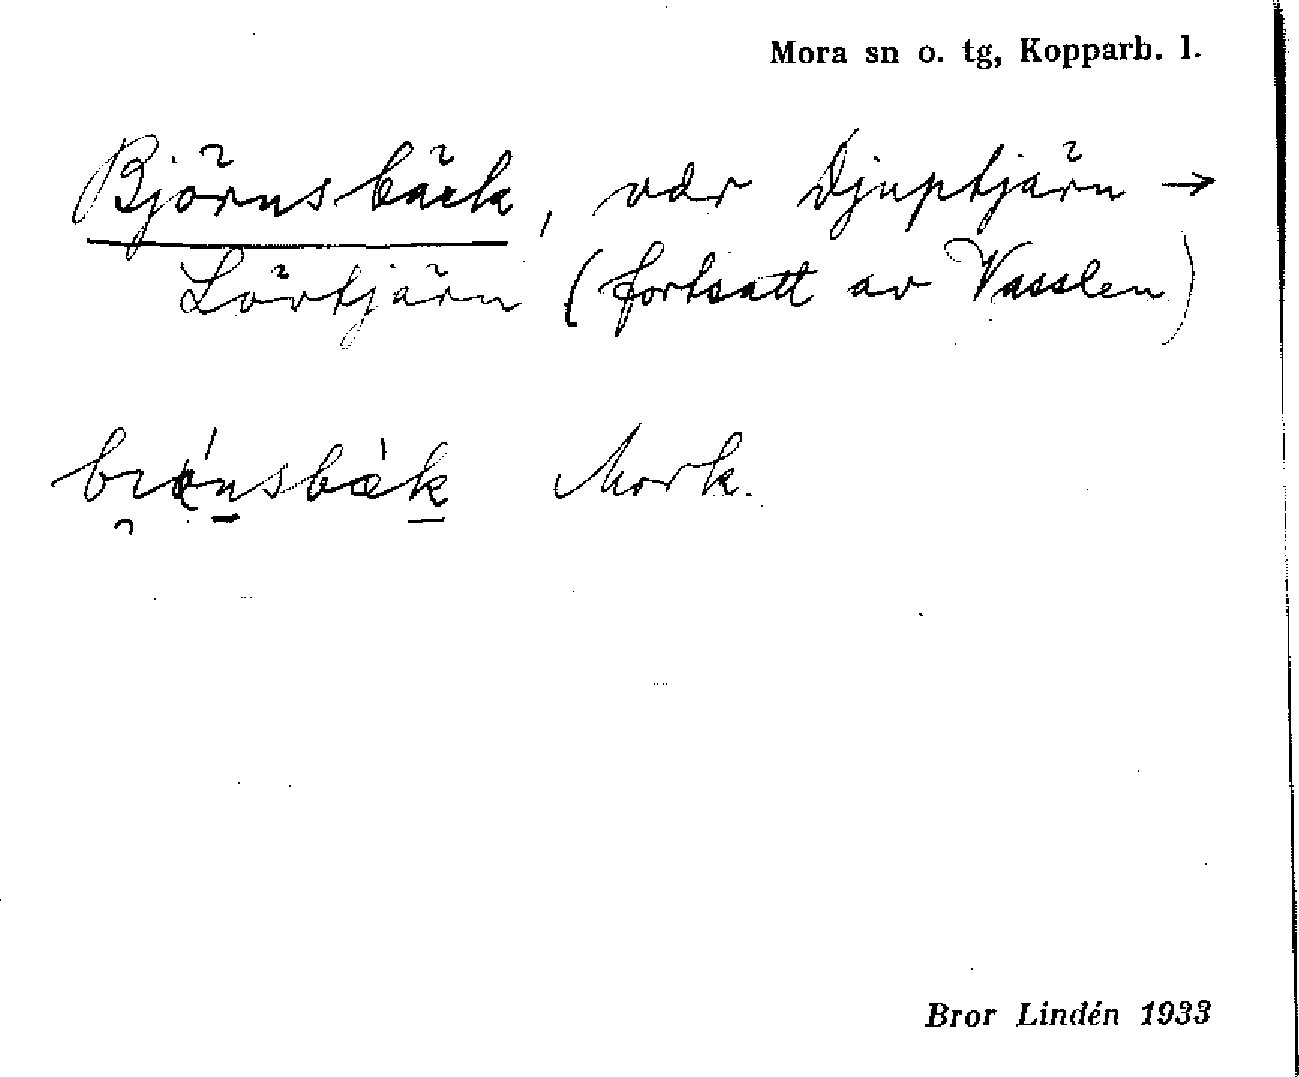 Mora sn o. tg, Kopparb. l.
Björnsbäck, vdr Djuptjärn →
Lövtjärn (fortsatt av Vasslen)
Mork.
Bror Lindén 1933